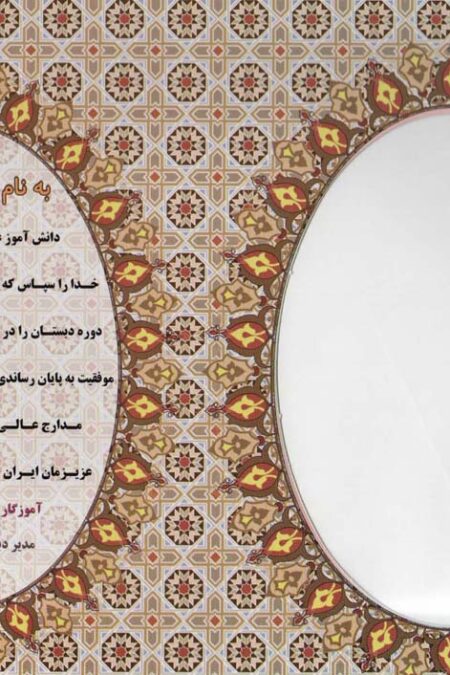 به نام
دانش آموز
خدا را سپاس که
دوره دبستان را در
موفقیت به پایان رساندی
مدارج عالی
عزیزمان ایران
آموزگار
مدیر